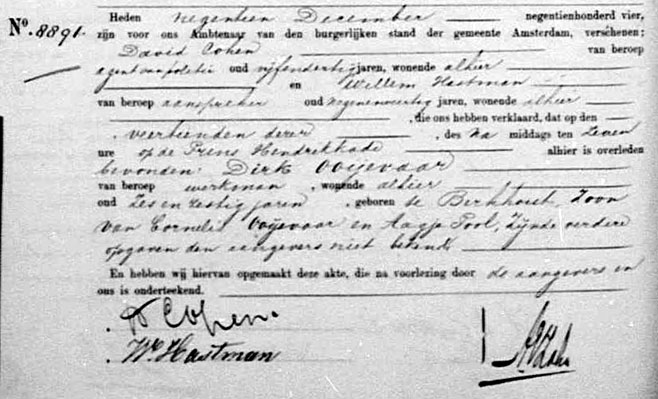 No. 8891.
Heden negentien December negentienhonderd vier,
zijn voor ons Ambtenaar van den burgerlijken stand der gemeente Amsterdam, verschenen;
David Cohen van beroep
agent van politie oud vijfendertig jaren, wonende alhier
en Willem Hastman
van beroep aanspreker oud negenenveertig jaren, wonende alhier
, die ons hebben verklaard, dat op den
veertienden dezer , des Na middags ten zeven
ure op de Prins Hendrikkade alhier is overleden
bevonden: Dirk Ooijevaar
van beroep werkman , wonende alhier
oud zes en zestig jaren , geboren te Berkhout, Zoon
van Cornelis Ooijevaar en Aagje Pool, zijnde verdere
opgaven den aangevers niet bekend.
En hebben wij hiervan opgemaakt deze akte, die na voorlezing door de aangevers en
ons is onderteekend.
D Cohen.
Wm Hastman